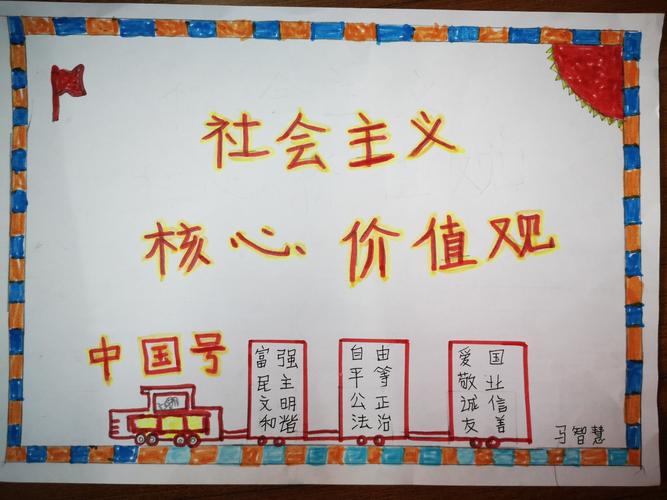 社会主义
核心价值观
中国号
富强
民主
文明
和谐
自由
平等
公正
法治
爱国
敬业
诚信
友善
马智慧